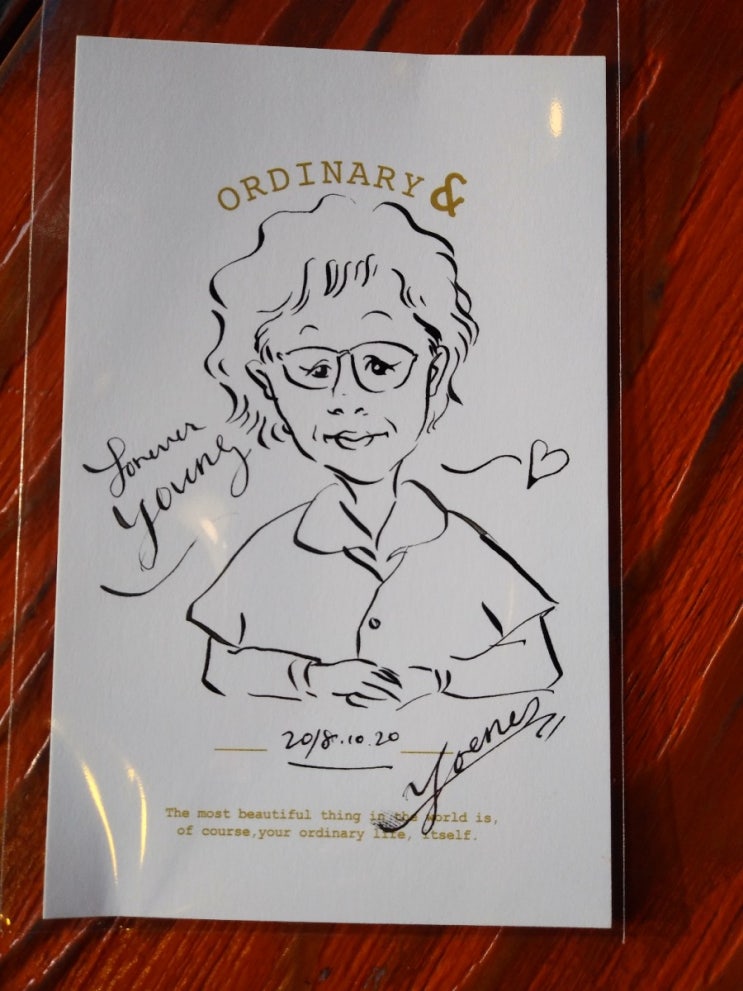 ORDINARY &
Forever
Young
2018.10.20
Yoenes
The most beautiful thing in the world is,
of course,your ordinary life, itself.